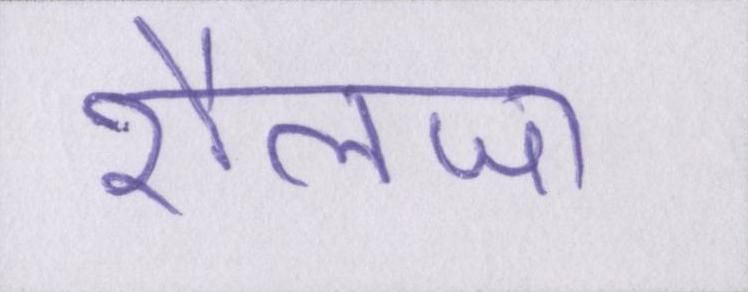 शैलजा